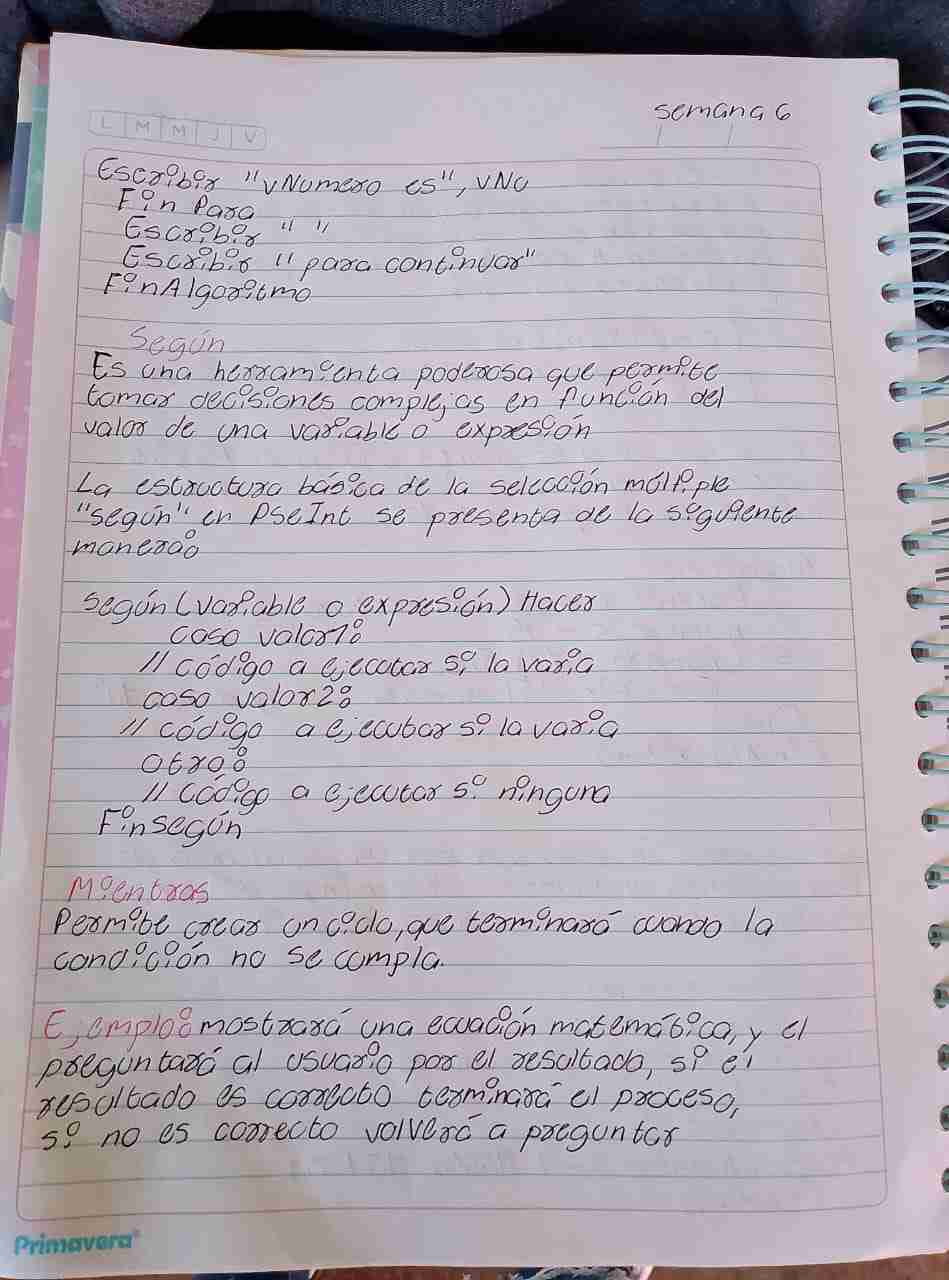 L M M J V
Semana 6
Escribir "vNumero es", vNu
Fin Para
Escribir " "
Escribir "para continuar"
FinAlgoritmo
Según
Es una herramienta poderosa que permite
tomar decisiones complejas en función del
valor de una variable o expresión
La estructura básica de la selección múltiple
"según" en PSeInt se presenta de la siguiente
manera:
Según (variable o expresión) Hacer
caso valor1:
// código a ejecutar si la varia
caso valor2:
// código a ejecutar si la varia
otro:
// código a ejecutar si ninguna
Finsegún
Mientras
Permite crear un ciclo, que terminará cuando la
condición no se cumpla.
Ejemplo: mostrará una ecuación matemática, y el
preguntará al usuario por el resultado, si el
resultado es correcto terminará el proceso,
si no es correcto volverá a preguntar
Primavera